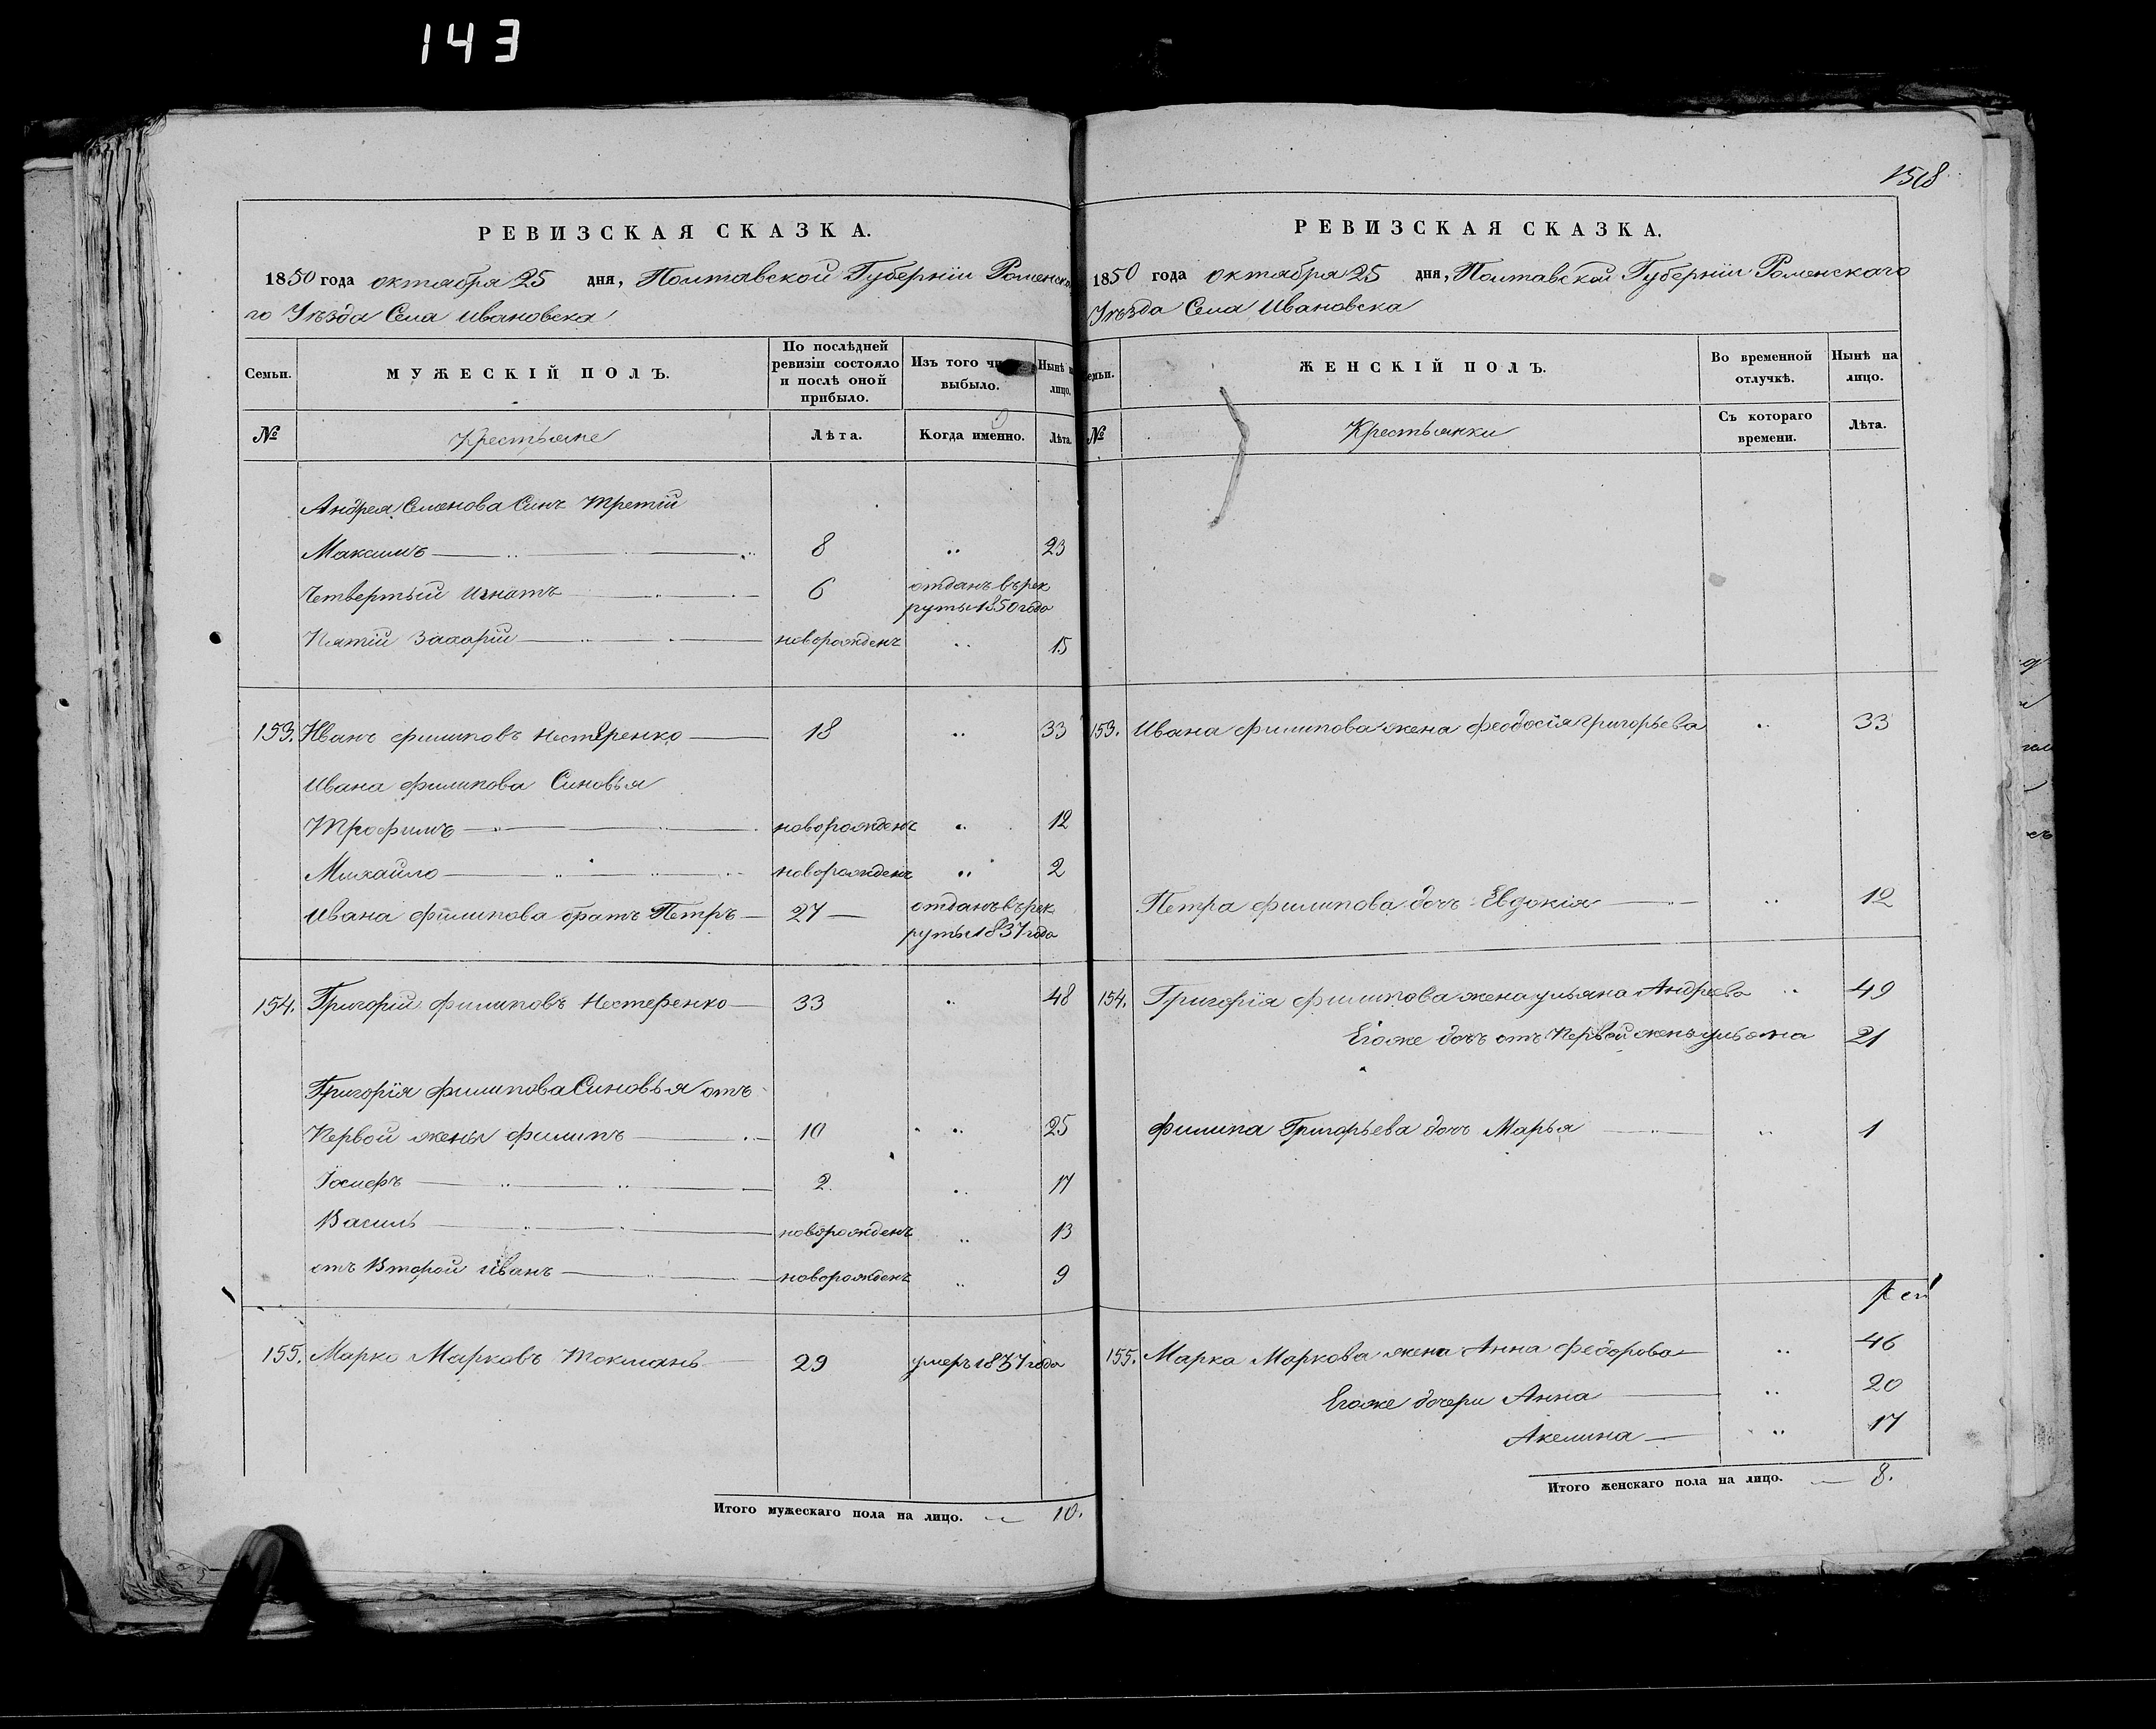 143
158
РЕВИЗСКАЯ СКАЗКА.
1850 года октября 25 дня, Полтавской Губернiи Роменска
го Уѣзда Села Ивановска
Семьи.
МУЖЕСКІЙ ПОЛЪ.
По послѣдней ревизіи состояло и послѣ оной прибыло.
Изъ того числа выбыло.
Нынѣ на лицо.
№
Крестьяне
Лѣта.
Когда именно.
Лѣта.
Андрея Семенова Синъ Третій
Максимъ 8 23
Четвертый Игнатъ 6 отданъ въ рек
руты 1850 года
Пятій Захарій новорожденъ 15
153. Иванъ Филиповъ Нестеренко 18 33
Ивана Филипова Синовья
Трофимъ новорожденъ 12
Михайло новорожденъ 2
Ивана Филипова братъ Петръ 27 отданъ въ рек
руты 1837 года
154. Григорій Филиповъ Нестеренко 33 48
Григорія Филипова Синовья отъ
Первой жены Филипъ 10 25
Іосифъ 2 17
Василь новорожденъ 13
отъ Второй Иванъ новорожденъ 9
155. Марко Марковъ Токмань 29 умеръ 1837 года
Итого мужескаго пола на лицо. 10.
РЕВИЗСКАЯ СКАЗКА.
1850 года октября 25 дня, Полтавской Губернiи Роменскаго
Уѣзда Села Ивановска
Семьи.
ЖЕНСКІЙ ПОЛЪ.
Во временной отлучкѣ.
Нынѣ на лицо.
№
Крестьянки
Съ котораго времени.
Лѣта.
153. Ивана Филипова жена Феодосія Григорьева 33
Петра Филипова дочь Евдокія 12
154. Григорія Филипова жена Ульяна Андреева 49
Егоже дочь отъ Первой жены Ульяна 21
Филипа Григорьева дочь Марья 1
155. Марка Маркова жена Анна Федорова 46
Егоже дочери Анна 20
Акелина 17
Итого женскаго пола на лицо. 8.